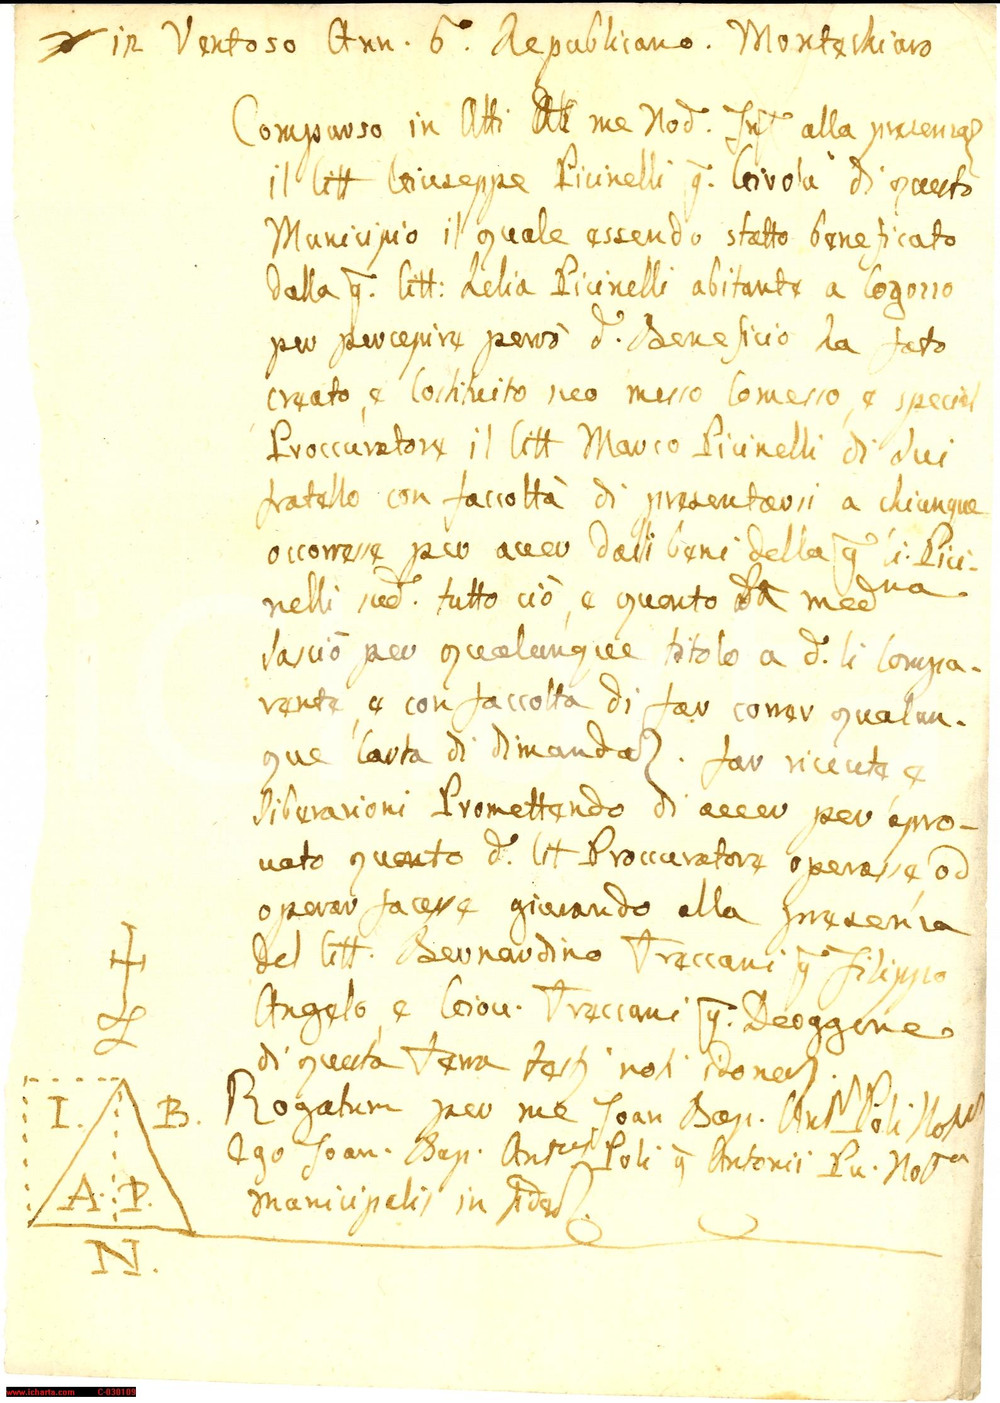 in Ventoso Ann. 6.º Republicano. Montechiaro
Comparso in Atti me Nod. Inf. alla presenza
il Citt Giuseppe Picinelli q. Girolº di questo
Municipio il quale essendo statto beneficato
dalla q. Citt: Lelia Picinelli abitante a Gogozzo
per percepire perciò d.º Beneficio ha fato
creato, e Costituito suo messo Comesso, e special
Proccuratore il Citt Marco Picinelli di lui
fratello con faccoltà di presentarsi a chiunque
occorresse per aver dalli beni della q. Pici-
nelli sud. tutto ciò, e quanto la medna.
lasciò per qualunque titolo a d. Ci Compa-
rente, e con faccolta di far correr qualun-
que Carta di dimanda. far ricevute e
liberazioni Promettendo di aver per apro-
vato quanto d.º Citt Proccuratore operasse, od
operar facesse giurando alla presenza
del Citt. Bernardino Treccani q. Filippo
Angelo, e Giov. Treccani q. Deoggene
di questa Terra testj noti idonei.
Rogatum per me Joan Bap. Ant. Poli Nod
Ego Joan. Bap. Ant.us Poli q. Antonii Pu. Not.s
municipalis in fide
I. B.
A. P.
N.
www.icharta.com C-030109